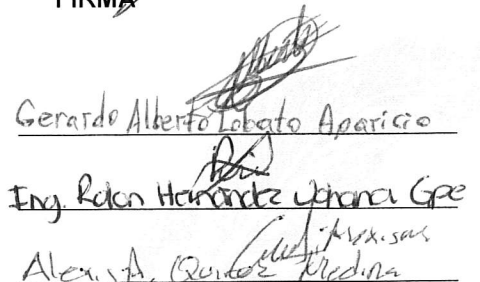 FIRMA
Gerardo Alberto Lobato Aparicio
Ing. Rolon Hernández Yohana Gpe
Alexis A. Medina